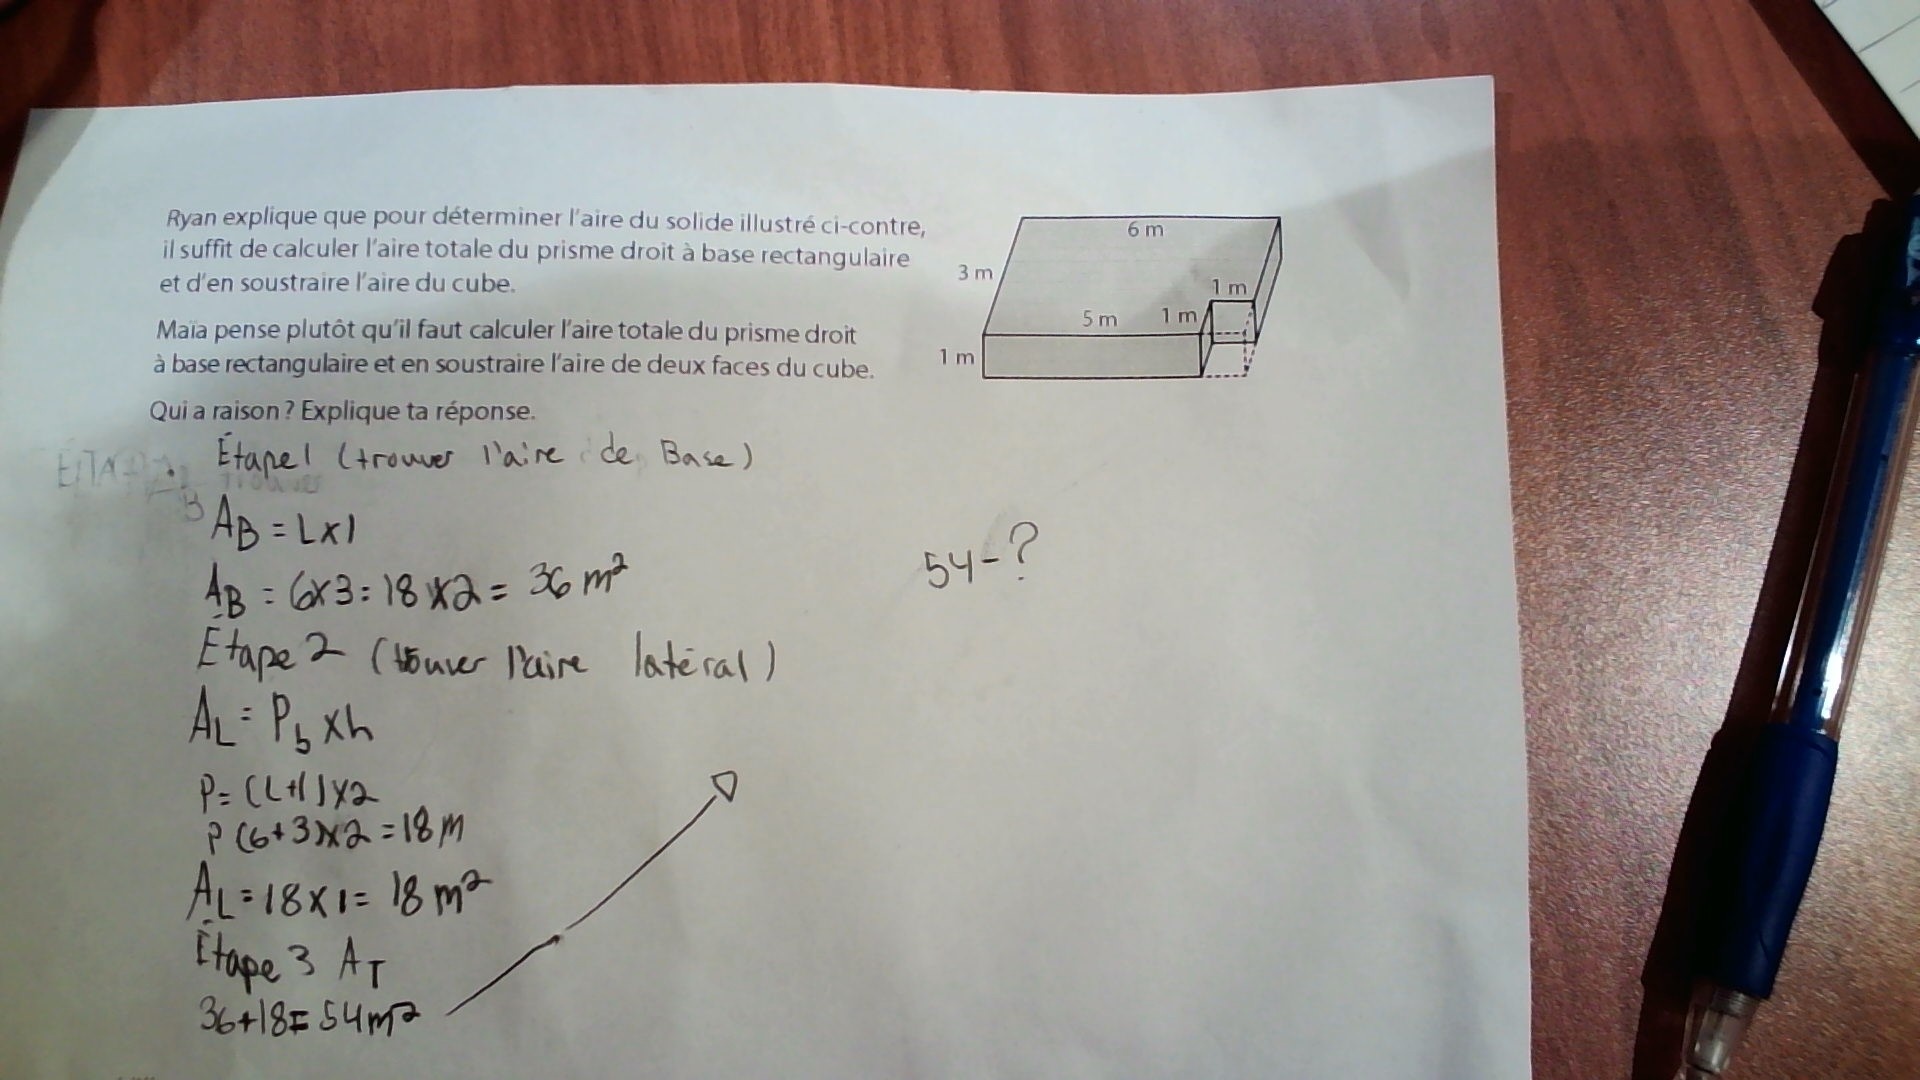 Ryan explique que pour déterminer l'aire du solide illustré ci-contre,
il suffit de calculer l'aire totale du prisme droit à base rectangulaire
et d'en soustraire l'aire du cube.
Maïa pense plutôt qu'il faut calculer l'aire totale du prisme droit
à base rectangulaire et en soustraire l'aire de deux faces du cube.
Qui a raison ? Explique ta réponse.
6 m
3 m
1 m
5 m
1 m
1 m
Étape 1 (trouver l'aire de Base)
AB = L x l
AB = 6x3 = 18 x2 = 36 m²
Étape 2 (trouver l'aire latéral)
AL = Pb x h
P = (L+l) x2
P (6+3) x2 = 18 m
AL = 18 x 1 = 18 m²
Étape 3 AT
36+18 = 54 m²
54 - ?